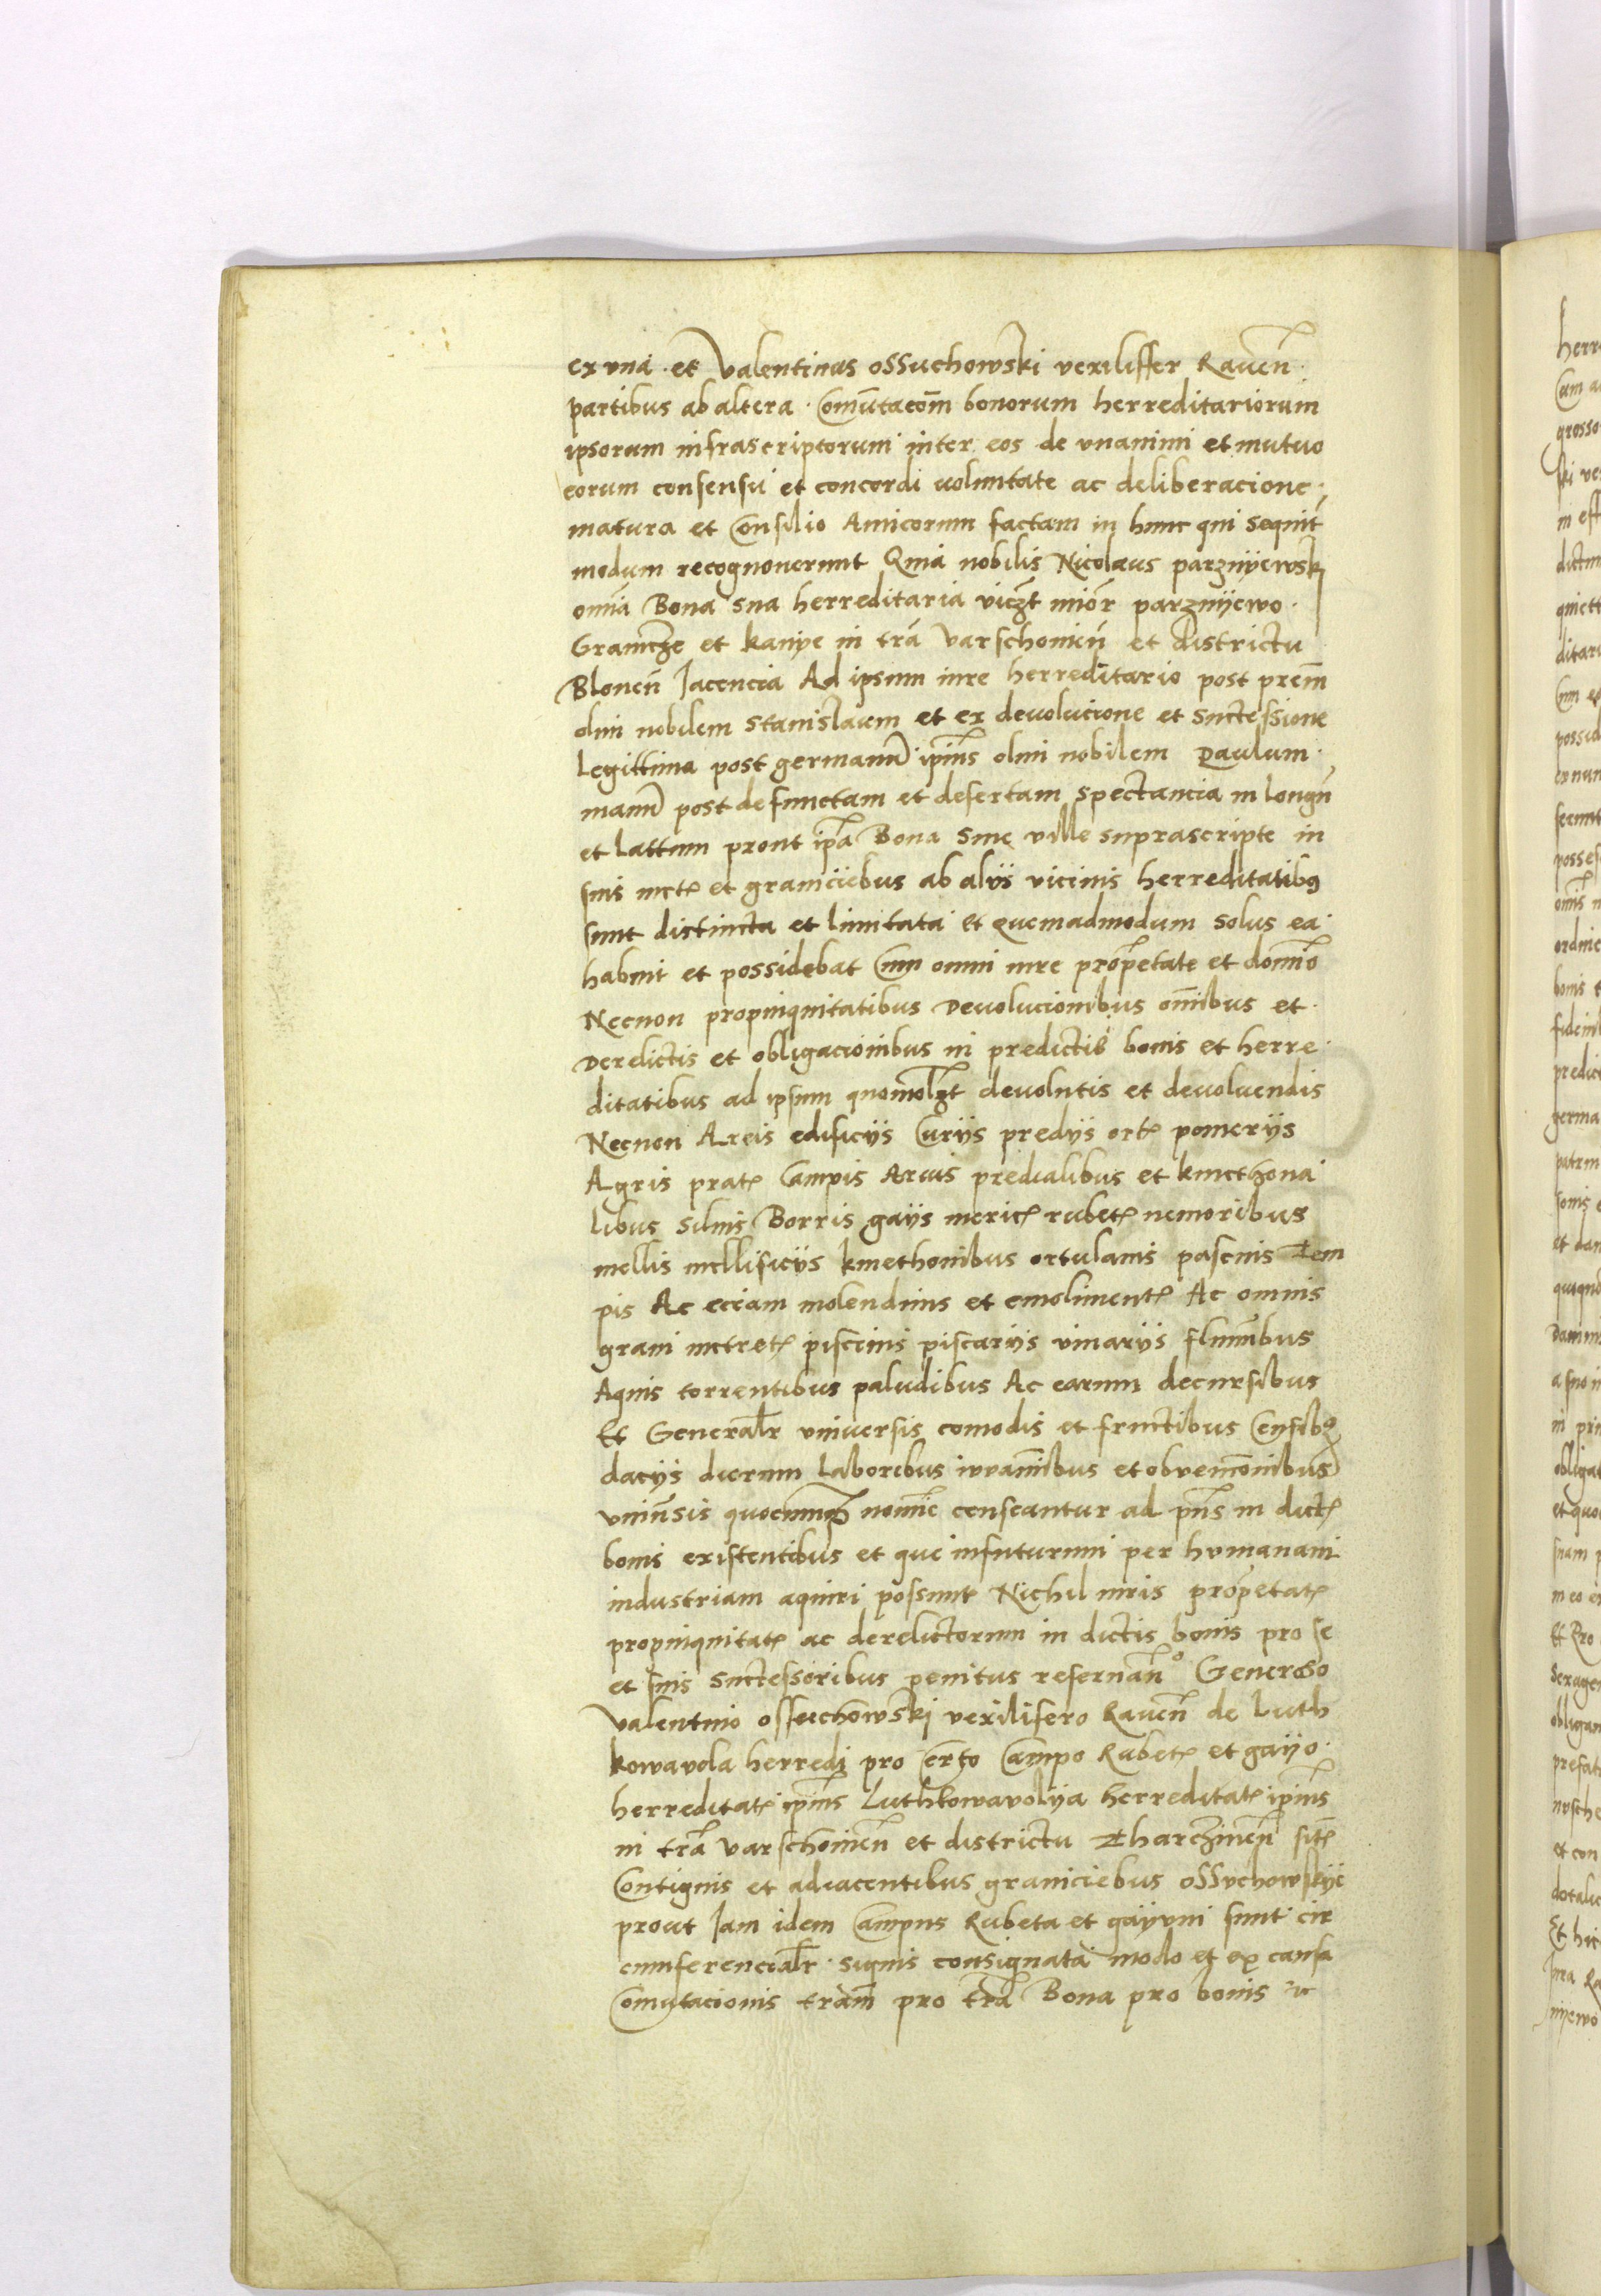 ex vna et Valentinus ossuchowski vexiliffer Raueñ
partibus ab altera Comũtacõm bonorum herreditariorum
ipsorum infrascriptorum inter eos de vnanimi et mutuo
eorum consensu et concordi voluntate ac deliberacione
matura et Consilio Amicorum factam in hunc qui sequiť
modum recognouerunt Quia nobilis Nicolaus parznijewskj
om̃ia Bona sua herreditaria viczt mior̃ parznijewo
Graniczhe et kanije in tr̃a varschouień et districtu
Bloneñ Jacencia Ad ipsum iure herreditario post prem̃
olim nobilem Stanislaum et ex deuolucione et Suctessione
Legittima post germanũ ip̃ius olim nobilem Paulum
manũ post defunctam et desertam spectancia in longũ
et Lattum prout ip̃a Bona Siue ville suprascripte in
suis metꝭ et graniciebus ab alijs vicinis herreditatibꝰ
sunt distincta et limitata et quemadmodum solus ea
habuit et possidebat Cum omni iure prop̃etate et domĩo
Necnon propinquitatibus Deuolucionibus om̃ibus et
Derelictis et obligacionibus in predictis bonis et herre
ditatibus ad ipsum quomolꝫt deuolutis et deuoluendis
Necnon Areis edificijs Curijs predijs ortꝭ pomerijs
Agris pratꝭ Campis Aruis predialibus et kmethona
libus siluis Borris gaijs mericꝭ rubetꝭ nemoribus
mellis mellificijs kmethonibus ortulanis pascuis Tem
pis Ac eciam molendinis et emolimentꝭ Ac omnis
grani metretꝭ piscinis piscarijs vinarijs flumĩbus
Aquis torrentibus paludibus Ac earum decursibus
Et Generalr̃ vniuersis comodis et fructibus Censibꝰ
dacijs dierum Laboribus iuuamĩbus et obuencõnibus
vniũsis quocumqꝫ nomĩe censeantur ad pñs in dictꝭ
bonis existentibus et que infuturum per humanam
industriam aquiri possunt Nichil iuris prop̃etatꝭ
propinquitatꝭ ac derelictorum in dictis bonis pro se
et suis Suctessoribus penitus reseruañº Generoso
Valentino ossuchowskj vexilifero Raueñ de Luth
kowavola herredj pro cer̃to Campo Rubetꝭ et gayo
herreditatꝭ ip̃ius Luthkowavolija herreditatꝭ ip̃ius
in tr̃a varschouieñ et districtu Tharczineñ sitꝭ
Contiguis et adiacentibus graniciebus ossuchowskije
prout Jam idem Campus Rubeta et gayvm sunt cir
cumferencialr̃ signis consignata modo et ex causa
Comutacionis tram̃ pro tr̃a Bona pro bonis ut